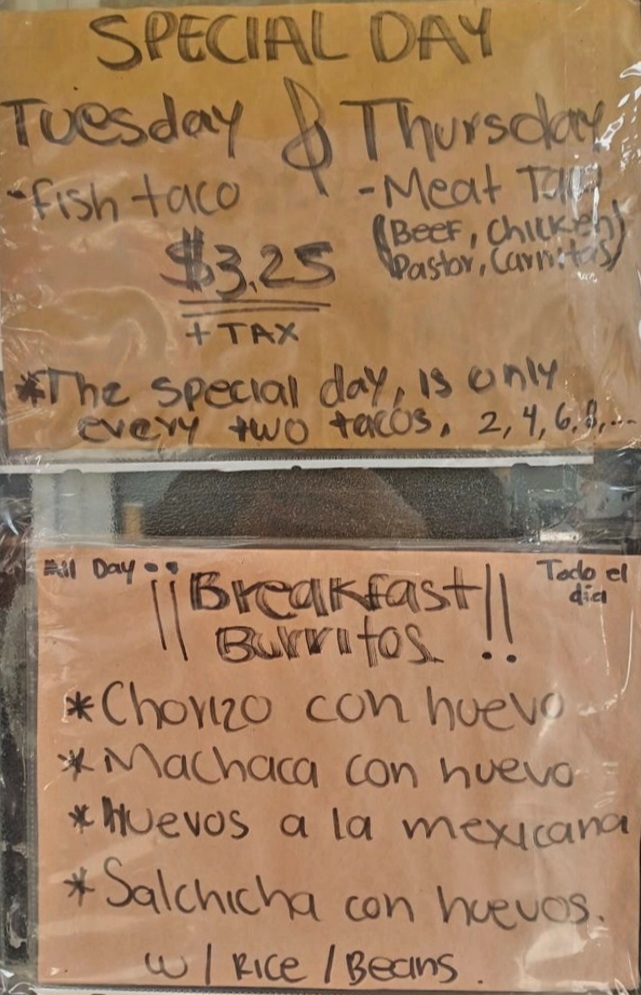 SPECIAL DAY
Tuesday & Thursday
-fish taco -Meat Taco
$3.25 (Beef, Chicken
Pastor, Carnitas)
+ TAX
*The special day, is only
every two tacos. 2, 4, 6, 8,...
All Day Todo el
día
¡¡Breakfast!!
Burritos
*Chorizo con huevo
*Machaca con huevo
*Huevos a la mexicana
*Salchicha con huevos.
w/ Rice / Beans.